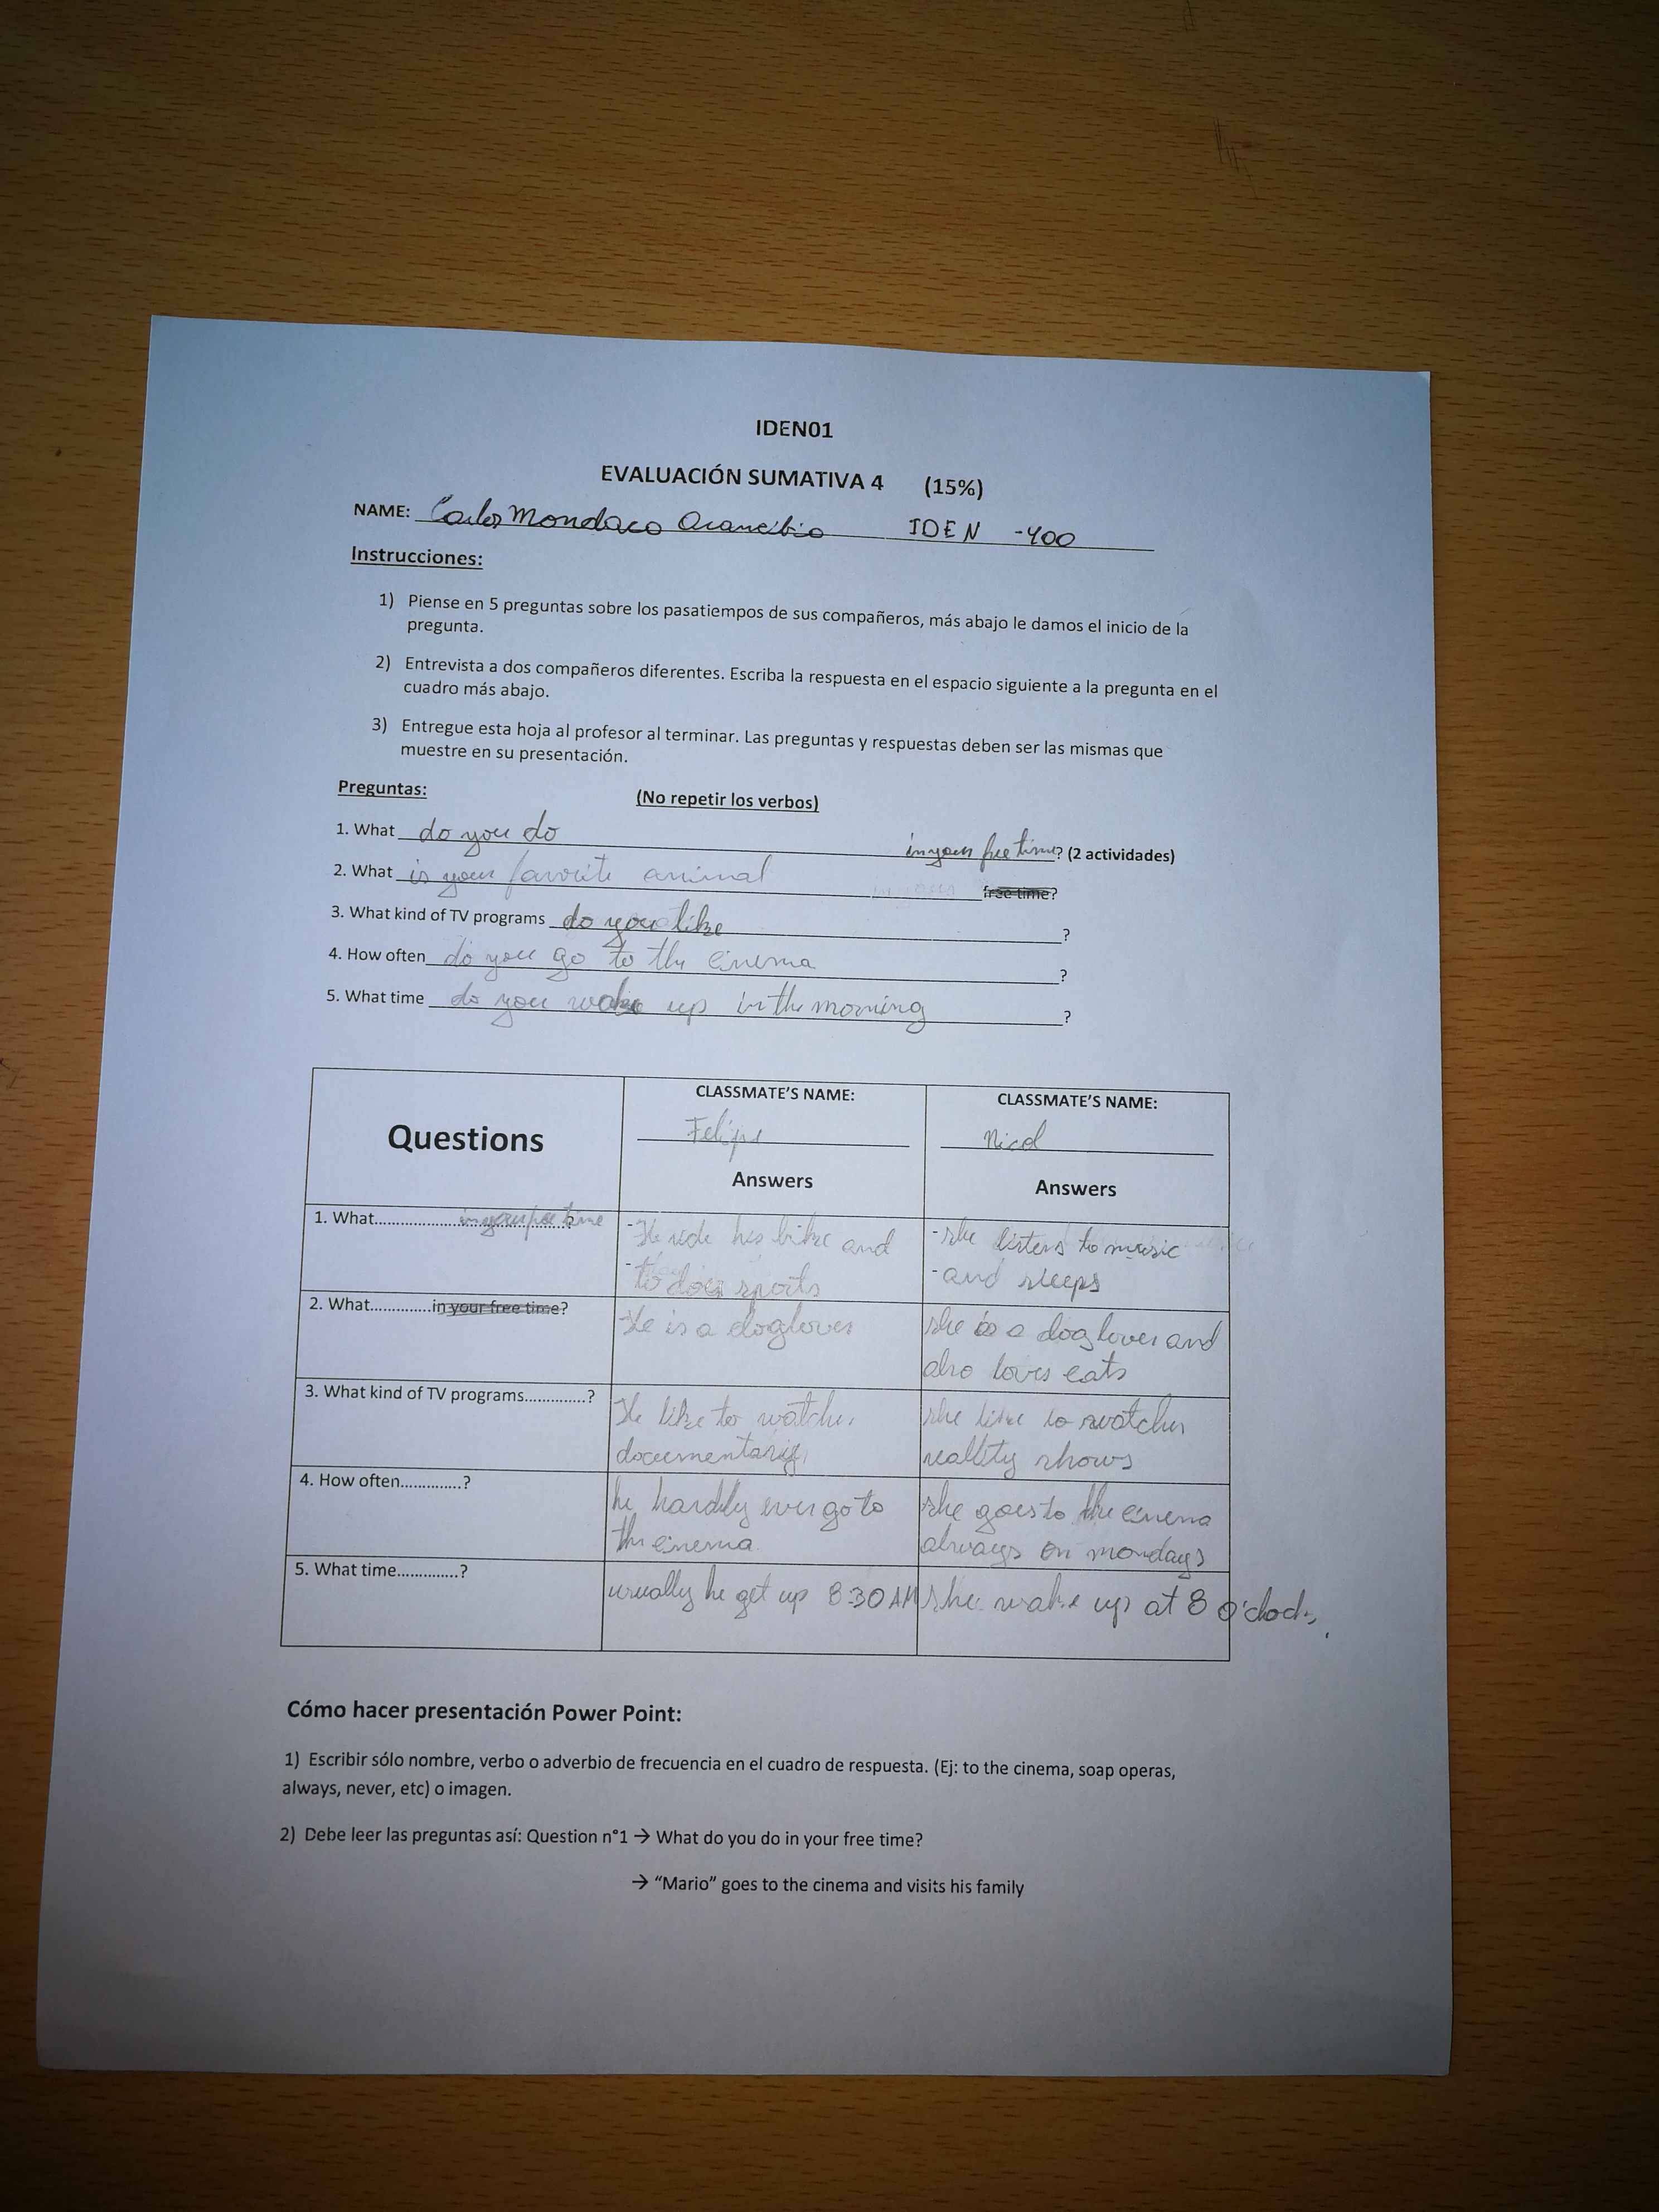 IDEN01
EVALUACIÓN SUMATIVA 4 (15%)
NAME: Carlos Mondaca Arancibia IDEN -400
Instrucciones:
1) Piense en 5 preguntas sobre los pasatiempos de sus compañeros, más abajo le damos el inicio de la
pregunta.
2) Entrevista a dos compañeros diferentes. Escriba la respuesta en el espacio siguiente a la pregunta en el
cuadro más abajo.
3) Entregue esta hoja al profesor al terminar. Las preguntas y respuestas deben ser las mismas que
muestre en su presentación.
Preguntas: (No repetir los verbos)
1. What do you do in your free time? (2 actividades)
2. What is your favorite animal in your free time?
3. What kind of TV programs do you like ?
4. How often do you go to the cinema ?
5. What time do you wake up in the morning ?
Questions
CLASSMATE'S NAME:
Felipe
Answers
CLASSMATE'S NAME:
Nicol
Answers
1. What.......................in your free time?
-He ride his bike and
-to does sports
-she listens to music
-and sleeps
2. What.............in your free time?
He is a doglover
she is a doglover and
also loves cats
3. What kind of TV programs.............?
He like to watch
documentaries
she like to watches
reallity shows
4. How often.............?
he hardly ever go to
the cinema
she goes to the cinema
always on mondays
5. What time.............?
usually he get up 8:30 AM
she wake up at 8 o'clock
Cómo hacer presentación Power Point:
1) Escribir sólo nombre, verbo o adverbio de frecuencia en el cuadro de respuesta. (Ej: to the cinema, soap operas,
always, never, etc) o imagen.
2) Debe leer las preguntas así: Question n°1 → What do you do in your free time?
→ "Mario" goes to the cinema and visits his family